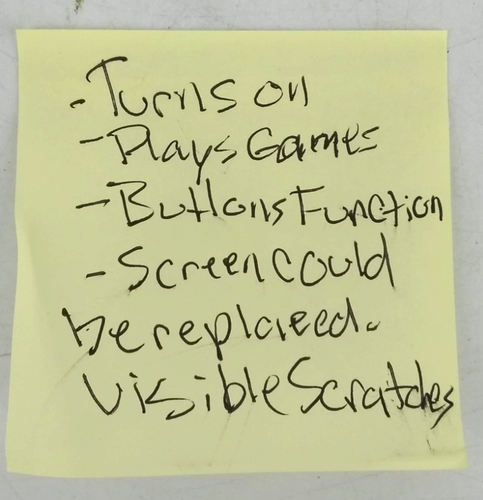 - Turns on
- Plays Games
- Buttons Function
- Screen could
be replaced.
Visible Scratches